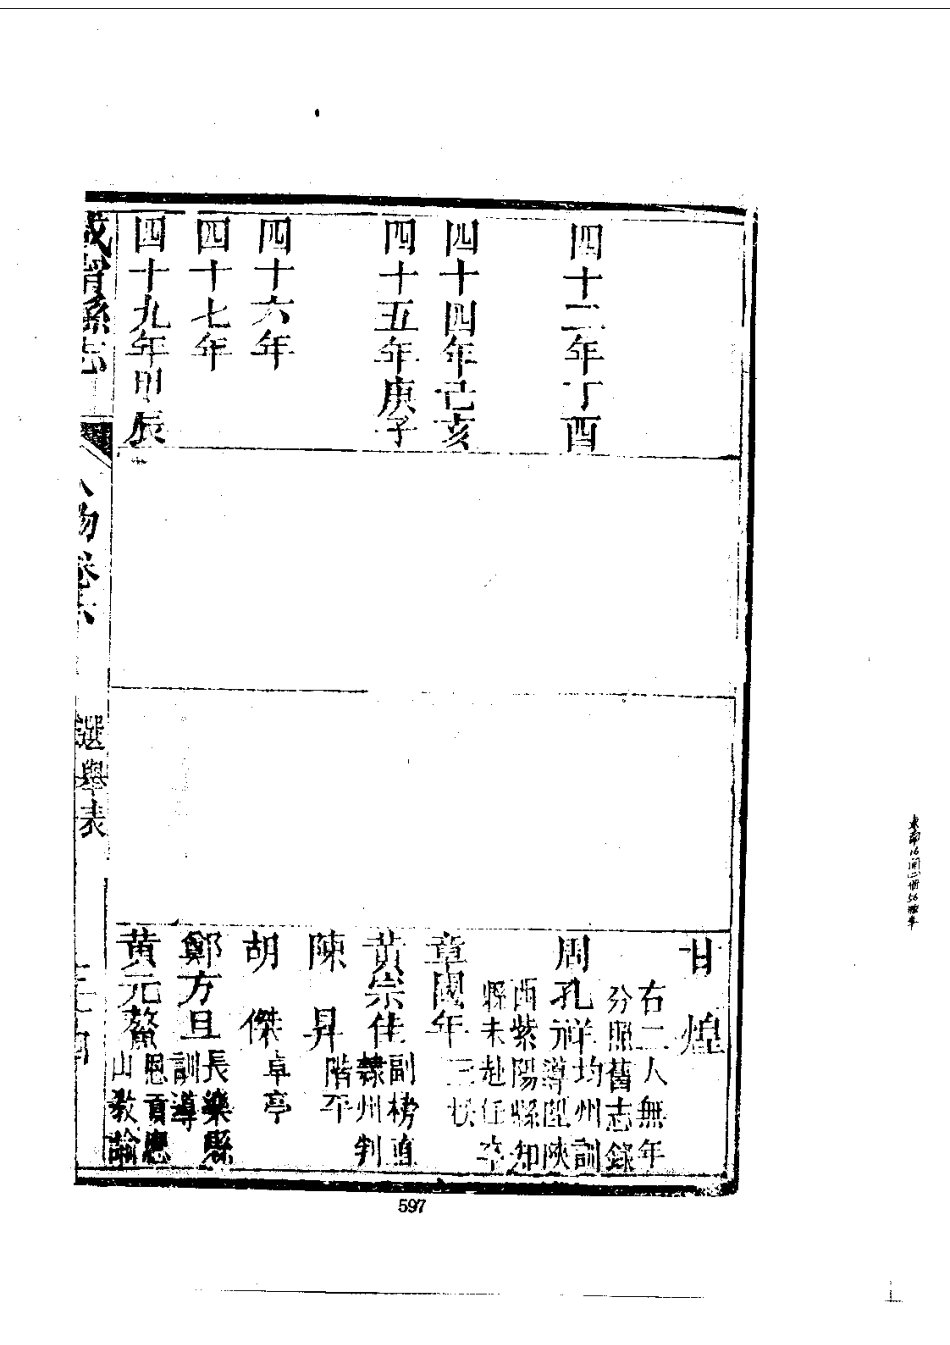 甘煌
右二人無年
分照舊志錄
四十二年丁酉
周孔祥均州訓
導陞陝
西紫陽縣知
縣未赴任卒
四十四年己亥
章國年
四十五年庚子
黄崇佳副榜直
隸州判
陳昇階平
四十六年
胡傑卓亭
四十七年
鄭方旦長樂縣
訓導
四十九年甲辰
黄元鰲恩貢應
山教諭
縣志
物卷六
選舉表
597